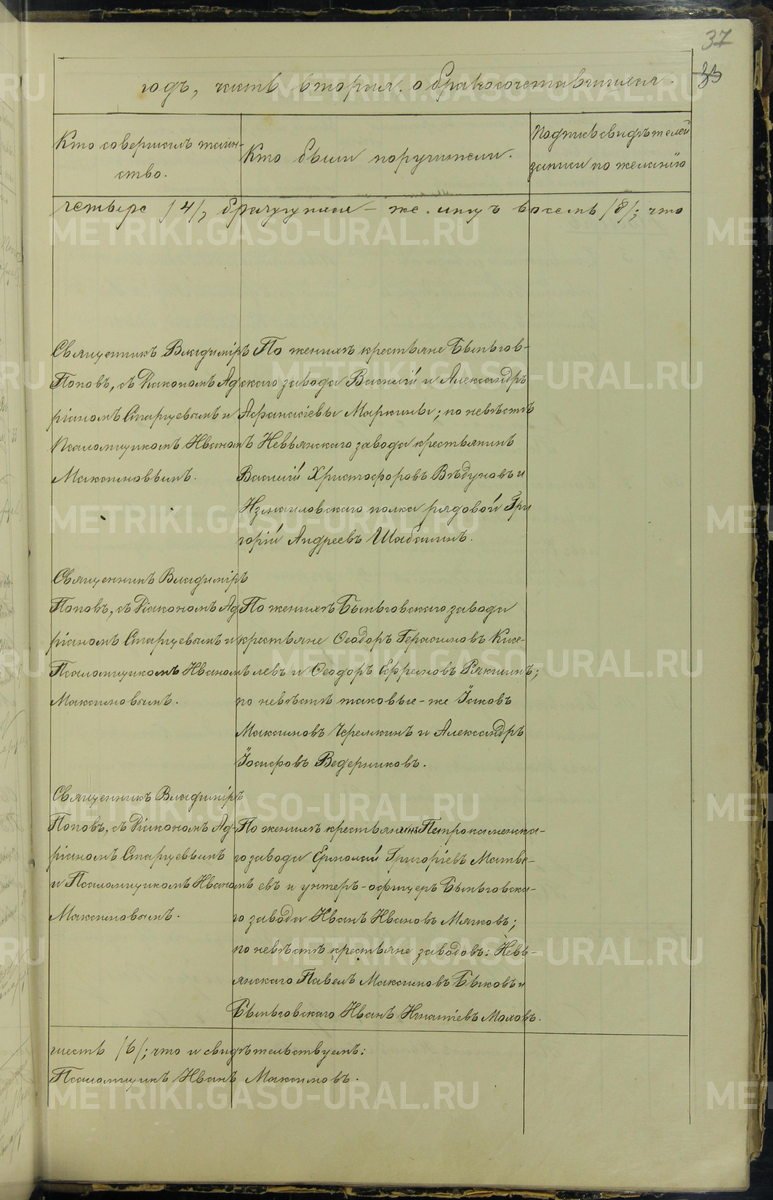 37
35
годъ, часть вторая, о бракосочетавшихся.
Кто совершилъ таин-
ство.
Кто были поручители.
Подпись свидѣтелей
записи по желанію
четыре /4/, брачущихся – же лицъ восемь /8/; что
Священникъ Владиміръ
Поповъ, съ Діакономъ Ад-
ріаномъ Старцевымъ и
Псаломщикомъ Иваномъ
Максимовымъ.
По женихѣ крестьяне Быньгов-
скаго завода Василій и Александръ
Афанасіевы Маркины; по невѣстѣ
Невьянскаго завода крестьянинъ
Василій Христофоровъ Вѣдуновъ и
Измаиловскаго полка рядовой Гри-
горій Андреевъ Шабалинъ.
Священникъ Владиміръ
Поповъ, съ Діакономъ Ад-
ріаномъ Старцевымъ и
Псаломщикомъ Иваномъ
Максимовымъ.
По женихѣ Быньговскаго завода
крестьяне Ѳеодоръ Герасимовъ Кисе-
левъ и Ѳеодоръ Ефремовъ
по невѣстѣ таковые-же Іаковъ
Максимовъ Черемхинъ и Александръ
Іосифовъ Ведерниковъ.
Священникъ Владиміръ
Поповъ, съ Діакономъ Ад-
ріаномъ Старцевымъ
и Псаломщикомъ Иваномъ
Максимовымъ.
По женихѣ крестьянинъ Петрокаменска-
го завода Ермолай Григоріевъ Матвѣ-
евъ и унтеръ-офицеръ Быньговска-
го завода Иванъ Ивановъ Мягковъ;
по невѣстѣ крестьяне заводовъ: Невь-
янскаго Павелъ Максимовъ Быковъ и
Быньговскаго Иванъ Игнатіевъ Маловъ.
шесть /6/; что и свидѣтельствуемъ:
Псаломщикъ Иванъ Максимовъ.
METRIKI.GASO-URAL.RU